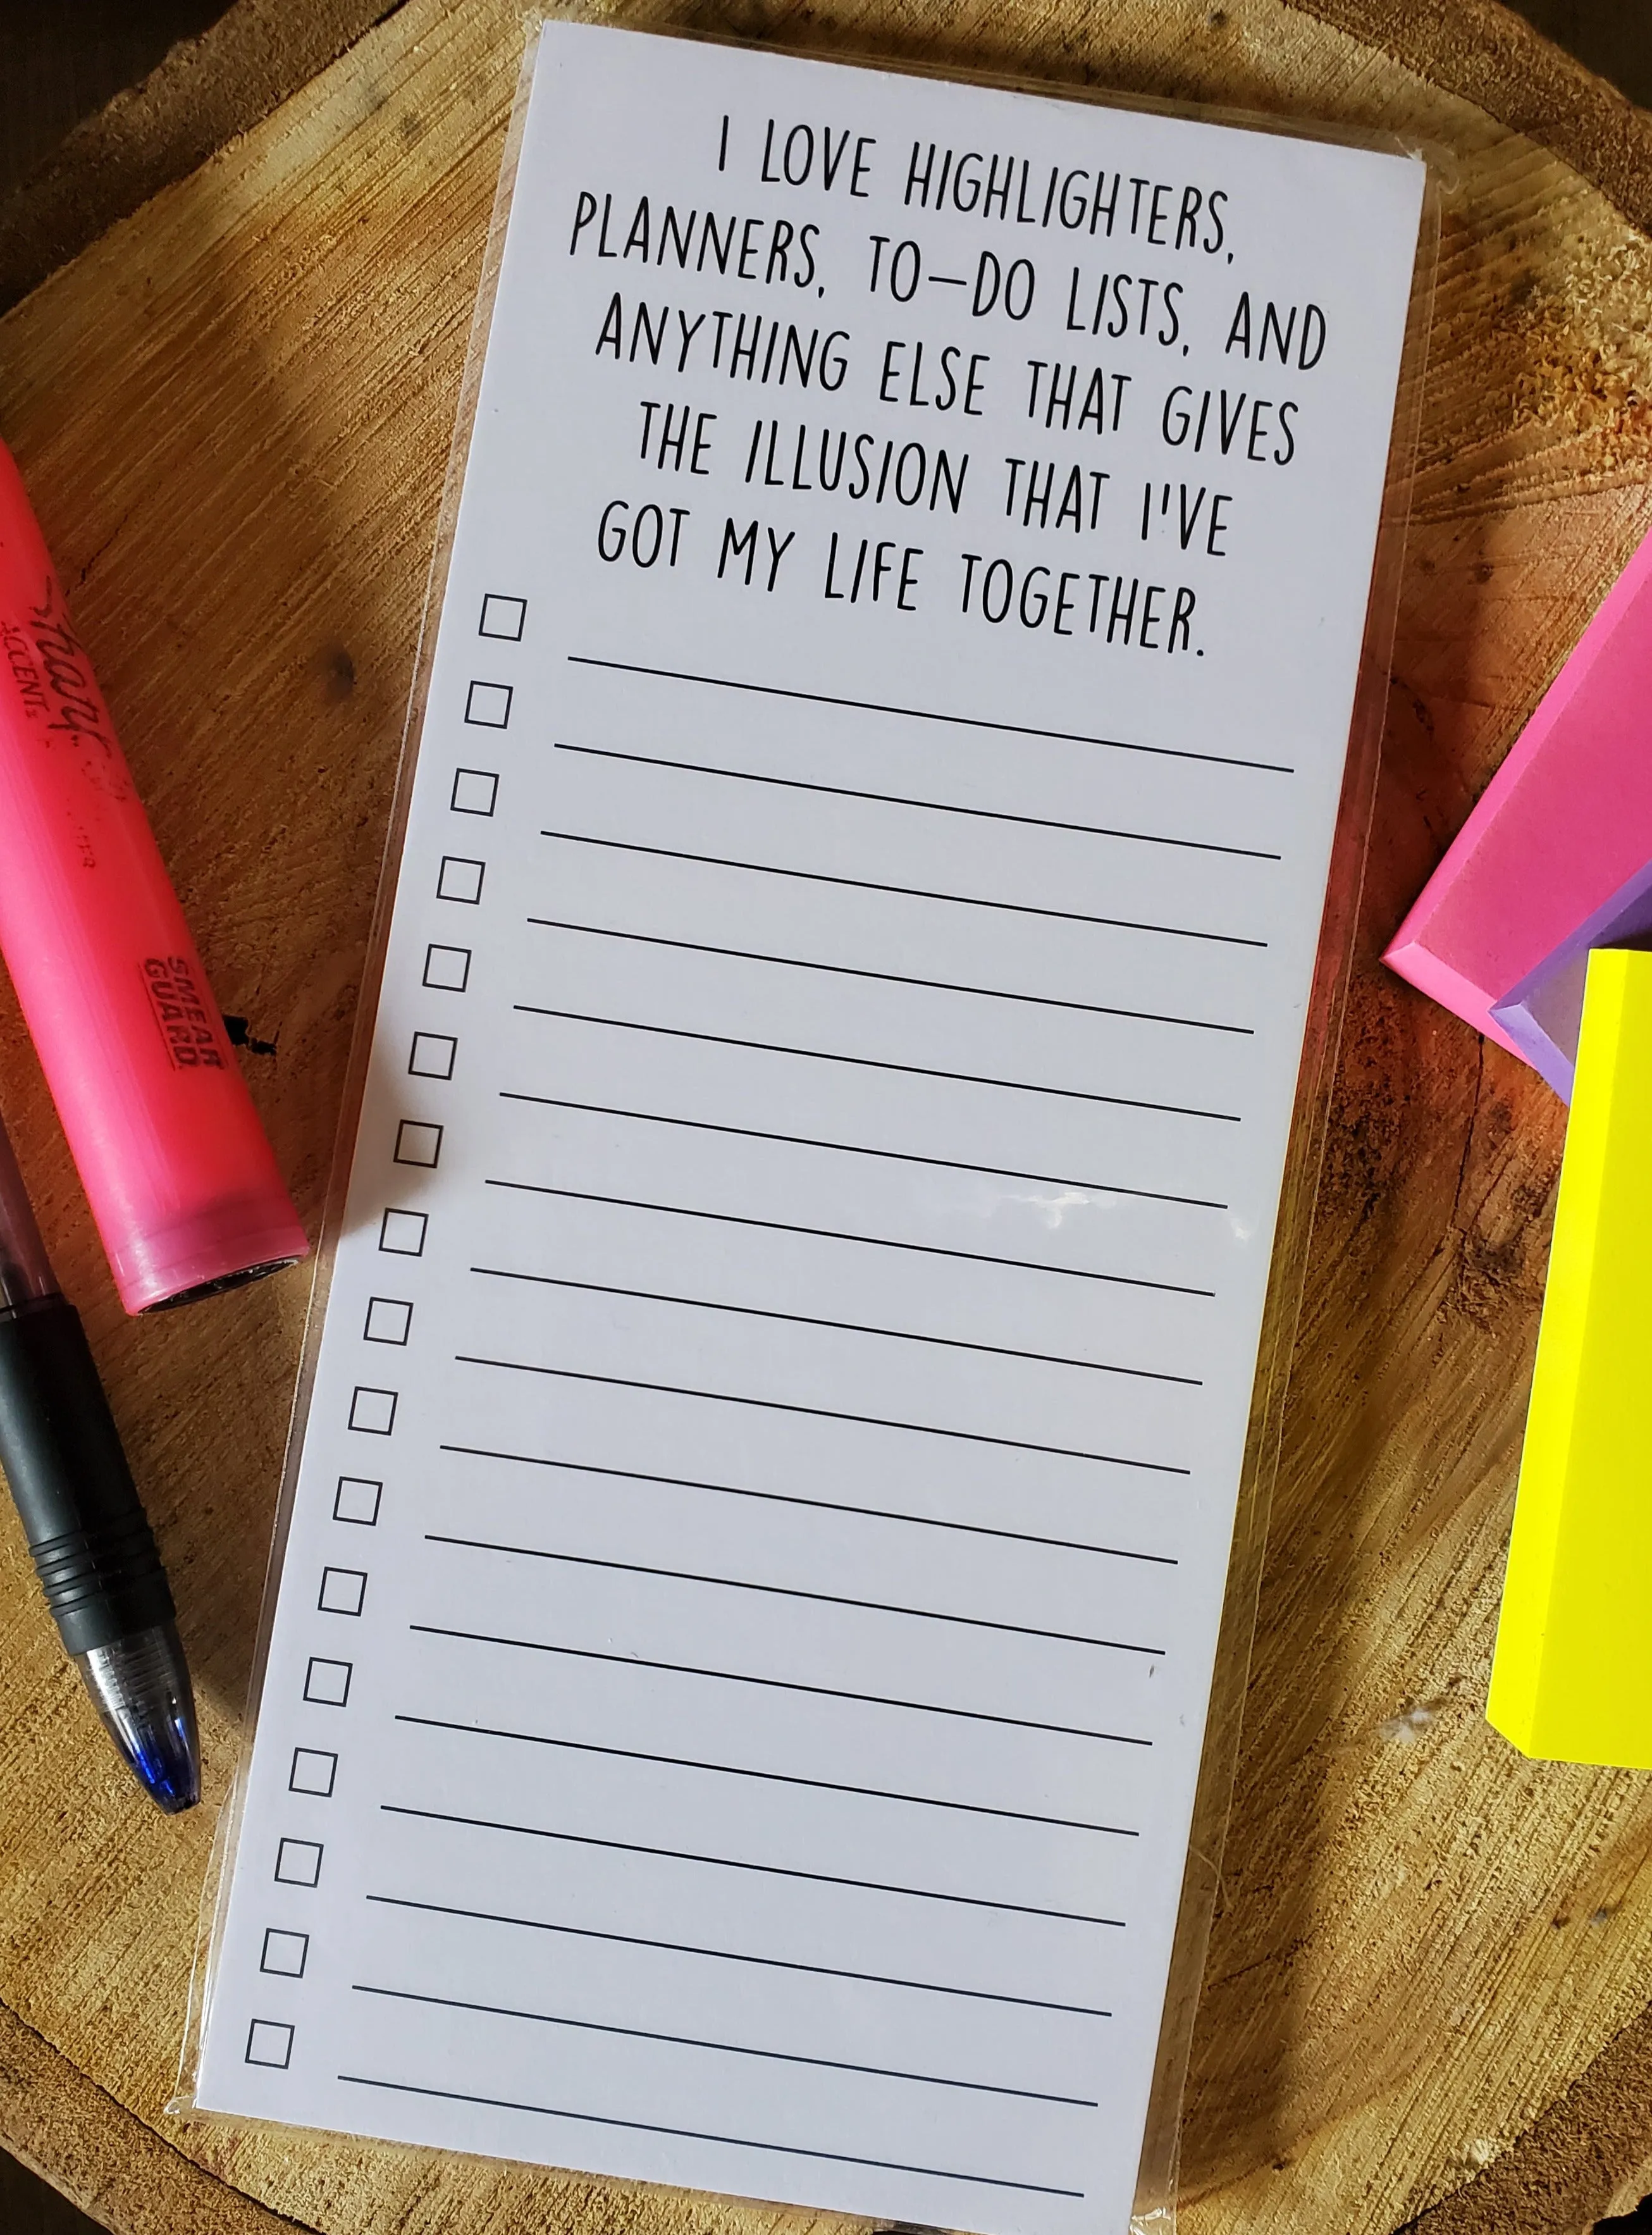 I LOVE HIGHLIGHTERS,
PLANNERS, TO-DO LISTS, AND
ANYTHING ELSE THAT GIVES
THE ILLUSION THAT I'VE
GOT MY LIFE TOGETHER.
ACCENT
SMEAR
GUARD